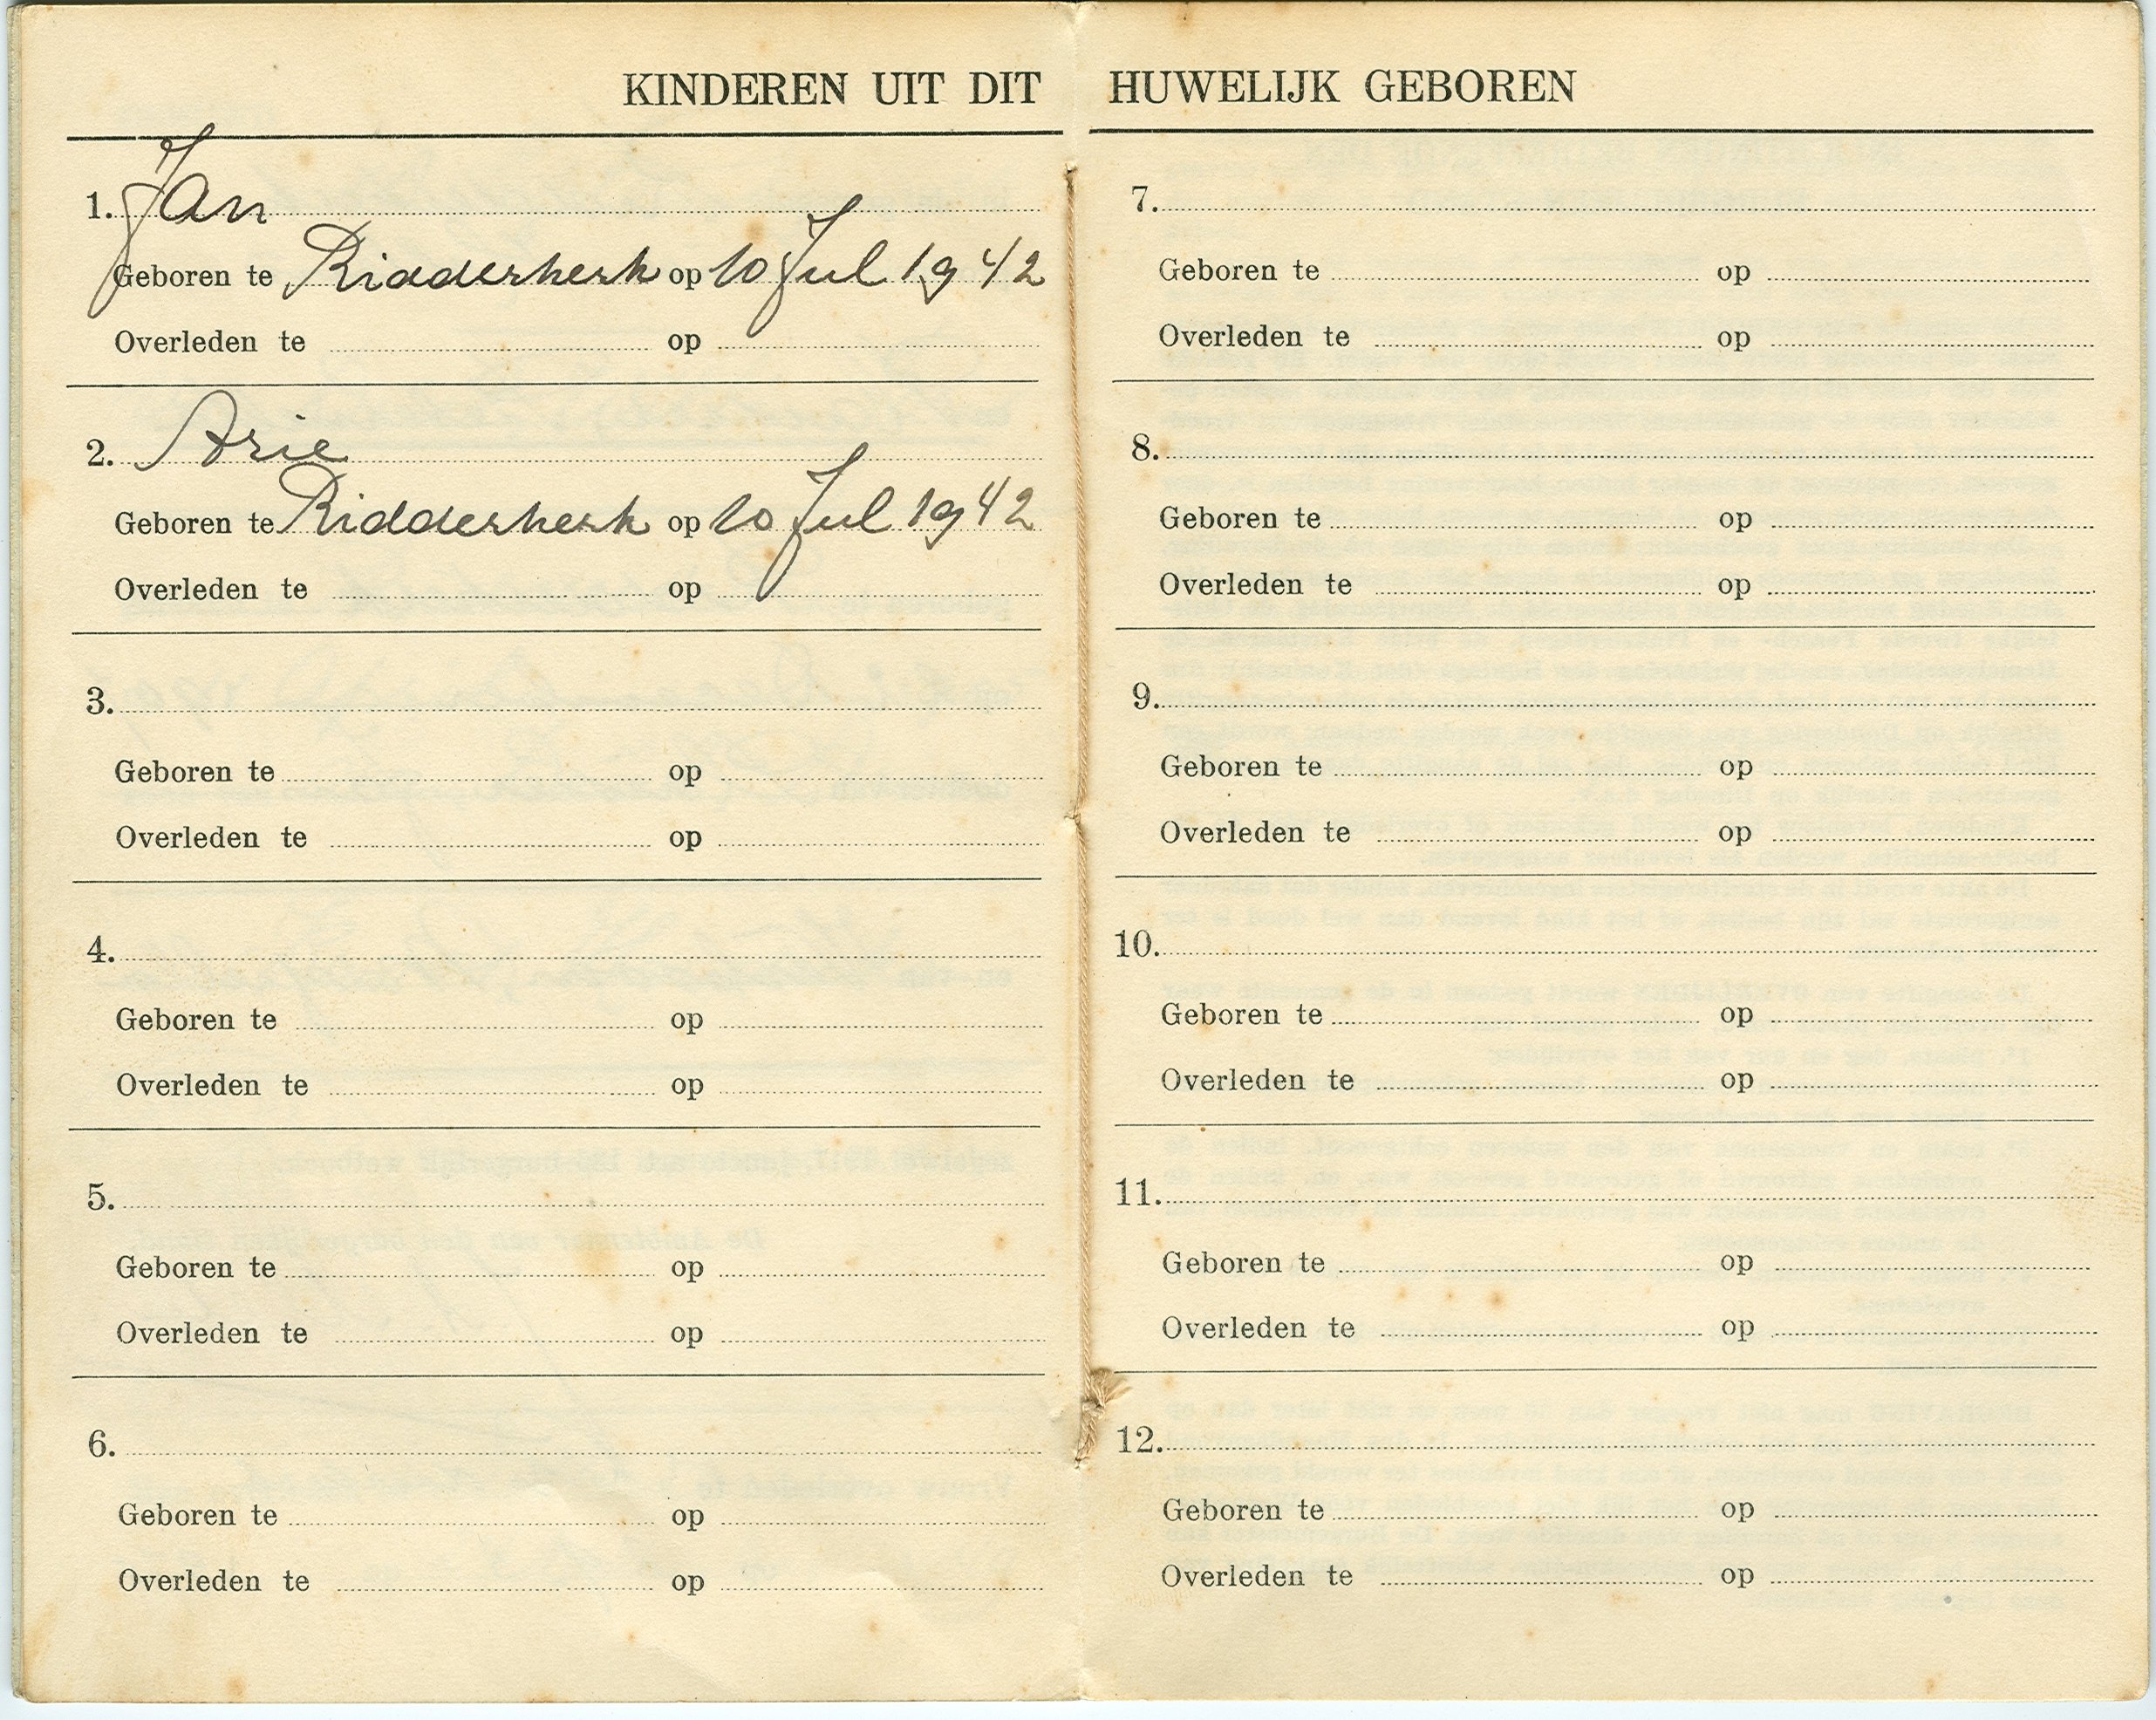 KINDEREN UIT DIT HUWELIJK GEBOREN
1. Jan
Geboren te Ridderkerk op 10 Jul 1942
Overleden te op
2. Arie
Geboren te Ridderkerk op 10 Jul 1942
Overleden te op
3.
Geboren te op
Overleden te op
4.
Geboren te op
Overleden te op
5.
Geboren te op
Overleden te op
6.
Geboren te op
Overleden te op
7.
Geboren te op
Overleden te op
8.
Geboren te op
Overleden te op
9.
Geboren te op
Overleden te op
10.
Geboren te op
Overleden te op
11.
Geboren te op
Overleden te op
12.
Geboren te op
Overleden te op